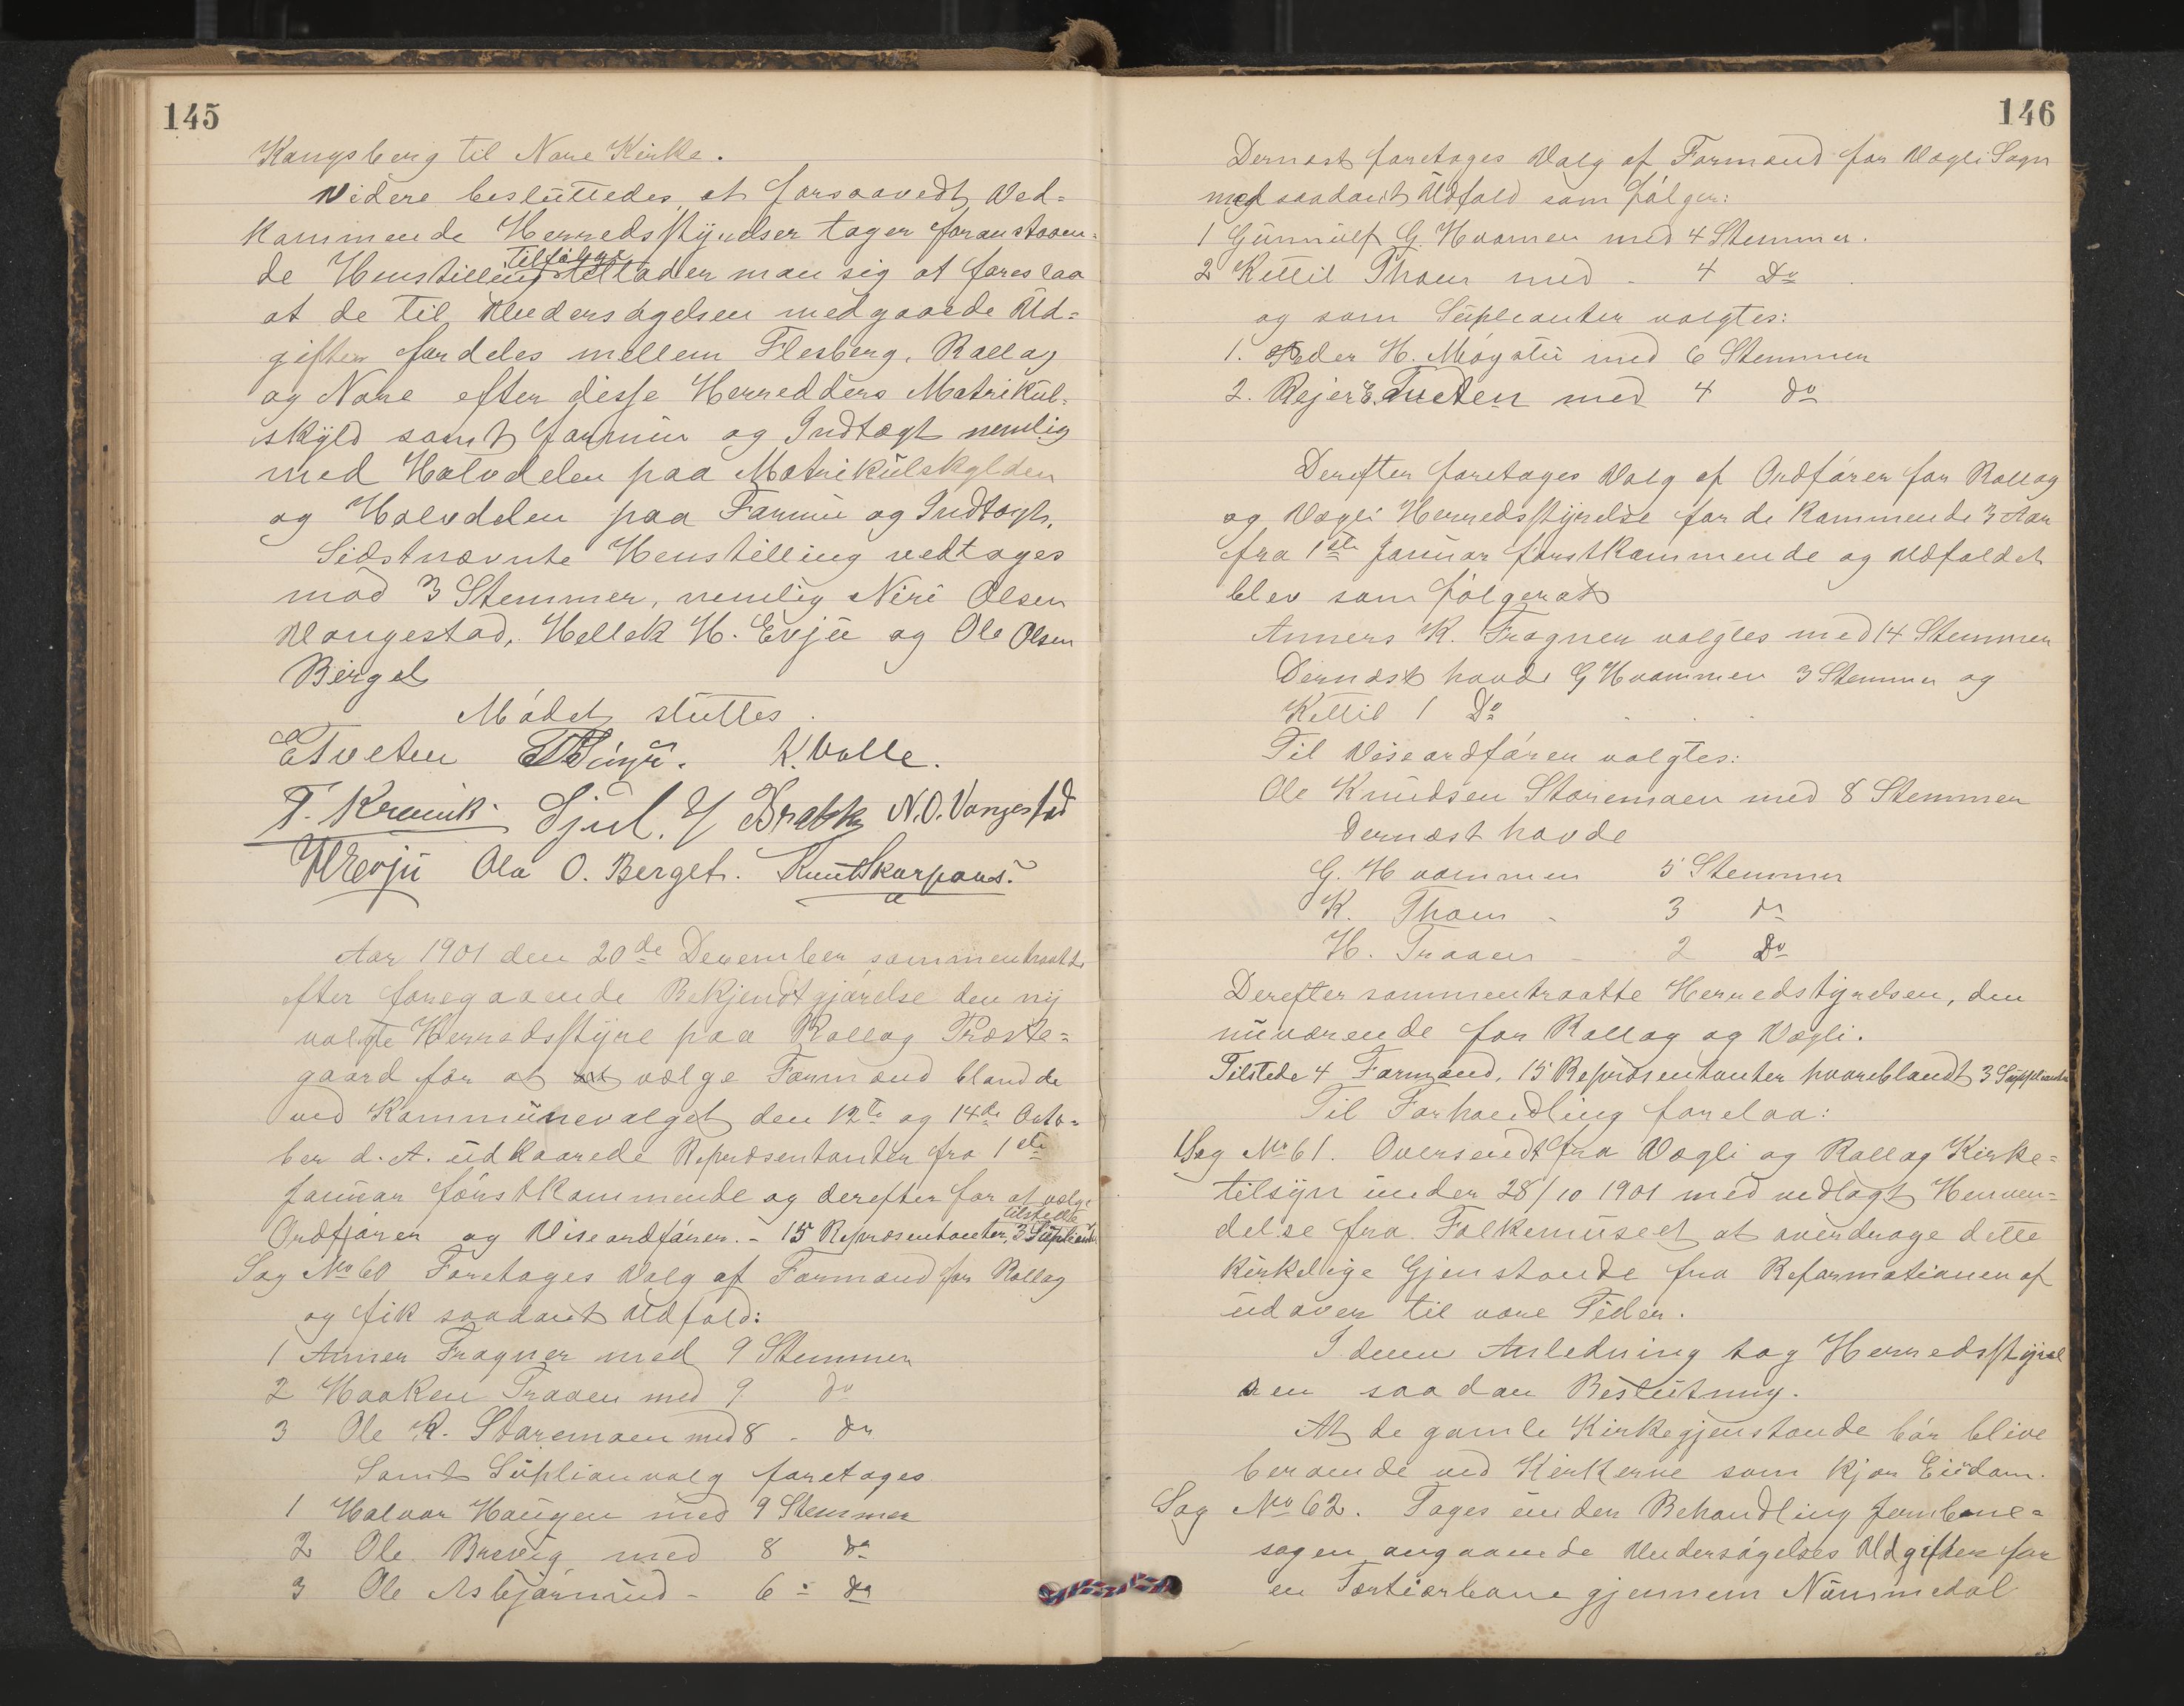 145
Kongsberg til Nore Kirke.
Videre besluttedes, at forsaavedt Ved-
kommende Herredsstyrelser tager foranstaaen-
de Henstilling tilfølge tillader man sig at foreslaa
at de til Undersøgelsen medgaaede Ud-
gifter fordeles mellem Flesberg, Rollag
og Nore efter disse Herredders Matrikul-
skyld samt formue og Indtægt nemlig
med Halvdelen paa Matrikulskylden
og Halvdelen paa Formue og Indtægt.
Sidstnævnte Henstilling vedtages
mod 3 Stemmer, nemlig Niri Olsen
Vangestad, Hellek H. Evju og Ole Olsen
Berget
Mødet sluttes.
E Tveten K. Valle.
T. Kravik N.O. Vangestad
H Evju Ola O. Berget. Knut Skarpaas.
Aar 1901 den 20de December sammentraatte
efter foregaaende Bekjendtgjørelse den ny
valgte Herredsstyre paa Rollag Præste-
gaard for at vælge Formænd bland de
ved Kommunevalget den 12te og 14de Octo-
ber d. A. udkaarede Repræsentanter fra 1ste
Januar førstkommende og derefter for at vælge
Ordfører og Viseordfører. - 15 Repræsentanter, 3 Suplianter tilstede
Sag No 60 Foretages Valg af Formænd for Rollag
og fik saadant Udfald:
1 Anner Fragner med 9 Stemmer
2 Haaken Traaen med 9 do
3 Ole K. Støremoen med 8 - do
Samt Suplianvalg foretages
1 Halvor Haugen med 9 Stemmer
2 Ole Brevig med 8 do
3 Ole Asbjørnrud - 6 - do
146
Dernæst foretages Valg af Formænd for Vægli Sogn
med saadant Udfald som følger:
1 Gunnulf G. Hvamen med 4 Stemmer.
2 Kettil Thoen med - 4 Do
og som Supleanter valgtes:
1. Peder H. Møgstu med 6 Stemmer
2. Rejer E. Tveten med 4 do
Derefter foretages Valg af Ordfører for Rollag
og Vægli Herredsstyrelse for de kommende 3 Aar
fra 1ste Januar førstkommende og Udfaldet
blev som følger at
Anners K. Fragner valgtes med 14 Stemmer
Dernæst havde G Hvammen 3 Stemmer og
Kettil 1 Do
Til Viseordfører valgtes:
Ole Knudsen Støremoen med 8 Stemmer
Dernæst havde
G. Hvammen 5 Stemmer
K. Thoen - 3 do
H. Traaen - 2 Do
Derefter sammentraatte Herredstyrelsen, den
nuværende for Rollag og Vægli.
Tilstede 4 Formænd, 15 Repræsentanter hvoreblandt 3 Supplianter
Til Forhandling forelaa:
Sag No 61. Oversendt fra Vægli og Rollag Kirke-
tilsyn under 28/10 1901 med vedlagt Henven-
delse fra Folkemuseet at overdrage dette
Kirkelige Gjenstande fra Reformationen af
udover til vore Tider.
I denn Anledning tog Herredsstyrel
sen saadan Beslutning.
At de gamle Kirkegjenstande bør blive
beroende ved Kirkerne som kjær Eiedom.
Sag No 62. Tages under Behandling Jernbane-
sagen angaaende Undersøgelses Udgifter for
en Tertiærbane gjennem Nummedal